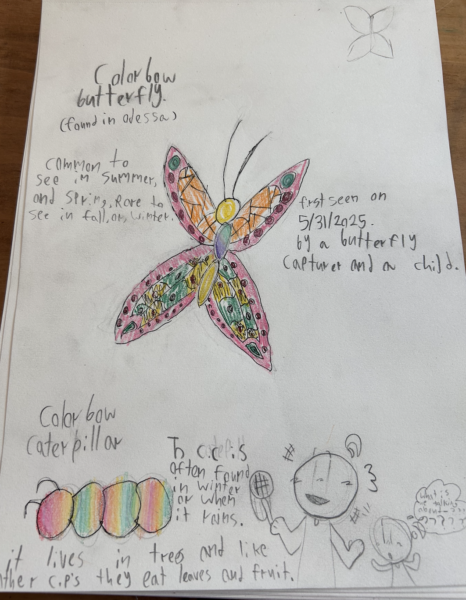 Colorbow
butterfly.
(found in odessa)
common to
see in summer,
and spring. Rare to
see in fall, or winter.
first seen on
5/31/2025.
by a butterfly
capturer and a child.
Colorbow
caterpillar
is
often found
in winter
or when
it rains.
it lives in tres and like
other c.p's they eat leaves and fruit.
what is